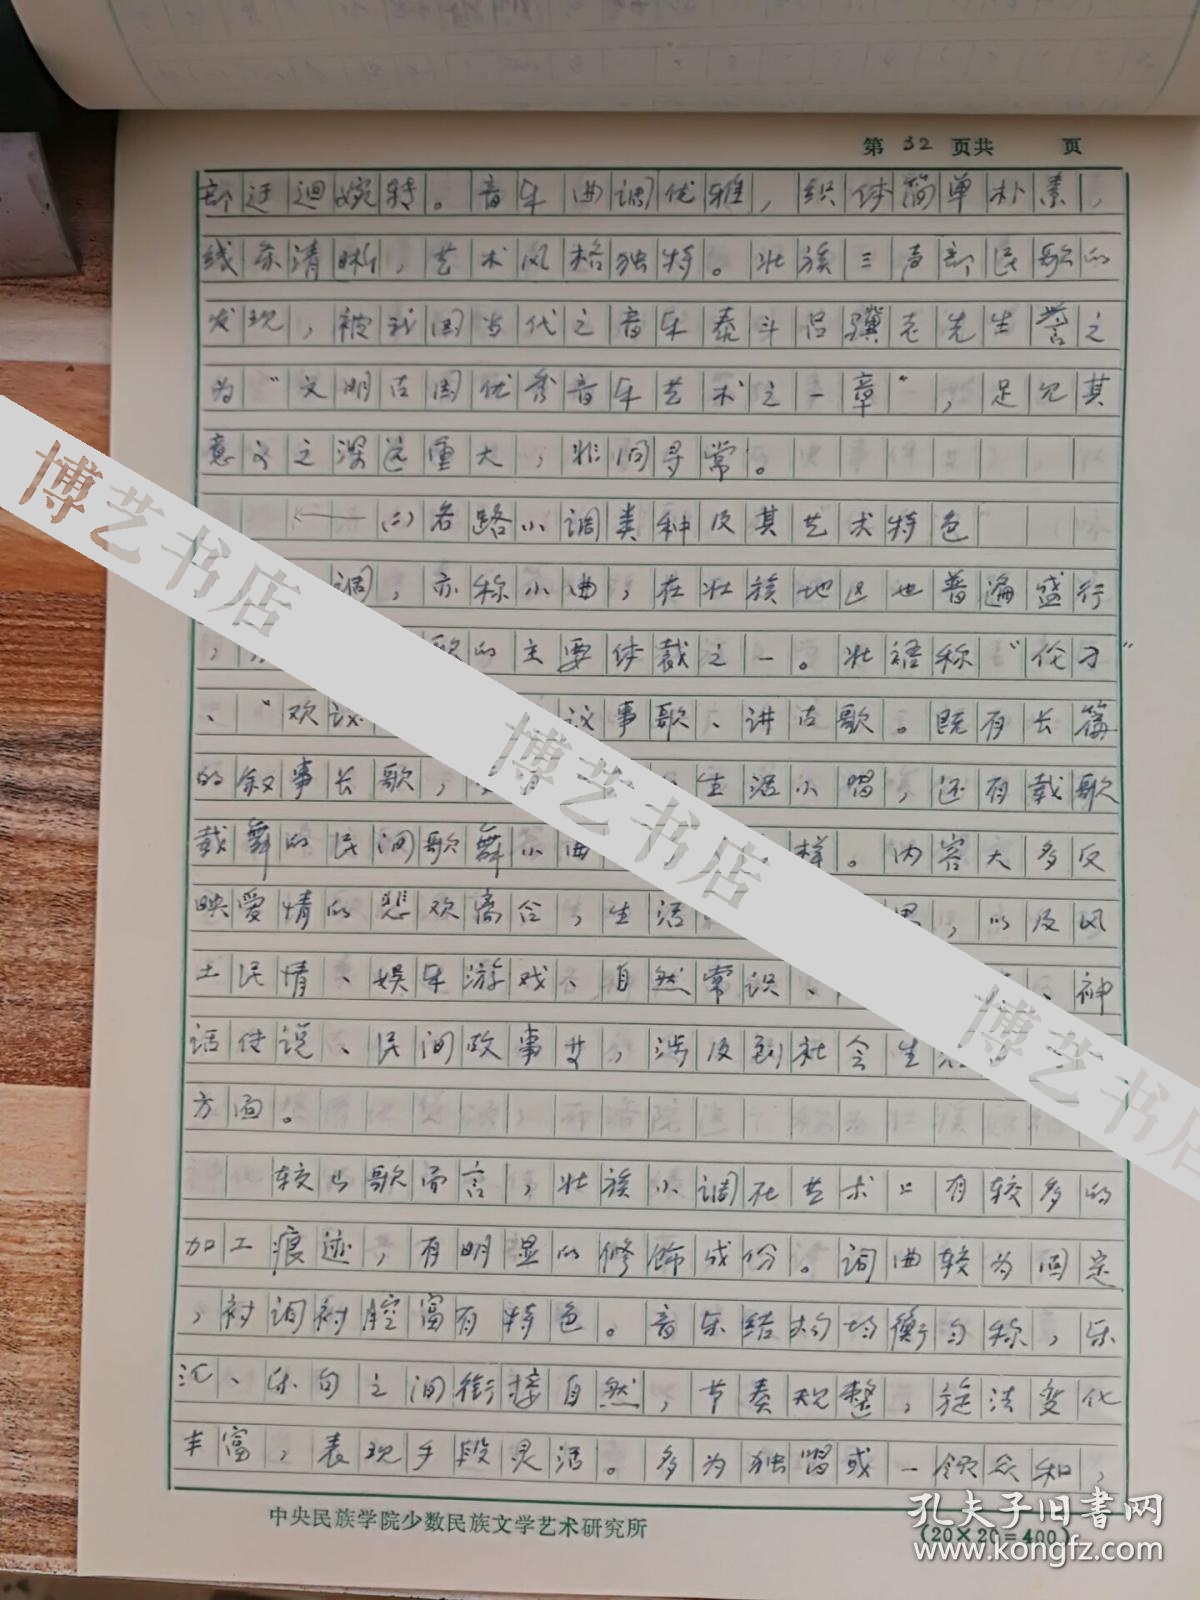 第 32 页共 页
部迂迴婉转。音乐曲调优雅，织体简单朴素，
线条清晰，艺术风格独特。壮族三声部民歌的
发现，被我国当代之音乐泰斗吕骥老先生誉之
为“文明古国优秀音乐艺术之一章”，足见其
意义之深远重大，非同寻常。
(二)各路小调类种及其艺术特色
调，亦称小曲，在壮族地区也普遍盛行
，歌的主要体裁之一。壮语称“伦才”
、“欢议 议事歌、讲古歌。既有长篇
的叙事长歌， 生活小唱，还有载歌
载舞的民间歌舞小曲 样。内容大多反
映爱情的悲欢离合，生活 ，以及风
土民情、娱乐游戏、自然常识、 、神
话传说、民间故事等，涉及到社会生
方面。
较山歌而言，壮族小调在艺术上有较多的
加工痕迹，有明显的修饰成份。词曲较为固定
，衬词衬腔富有特色。音乐结构均衡匀称，乐
汇、乐句之间衔接自然，节奏规整，旋法变化
丰富，表现手段灵活。多为独唱或一领众和，
中央民族学院少数民族文学艺术研究所
(20×20=400)
博艺书店
博艺书店
博艺书店
孔夫子旧书网
www.kongfz.com